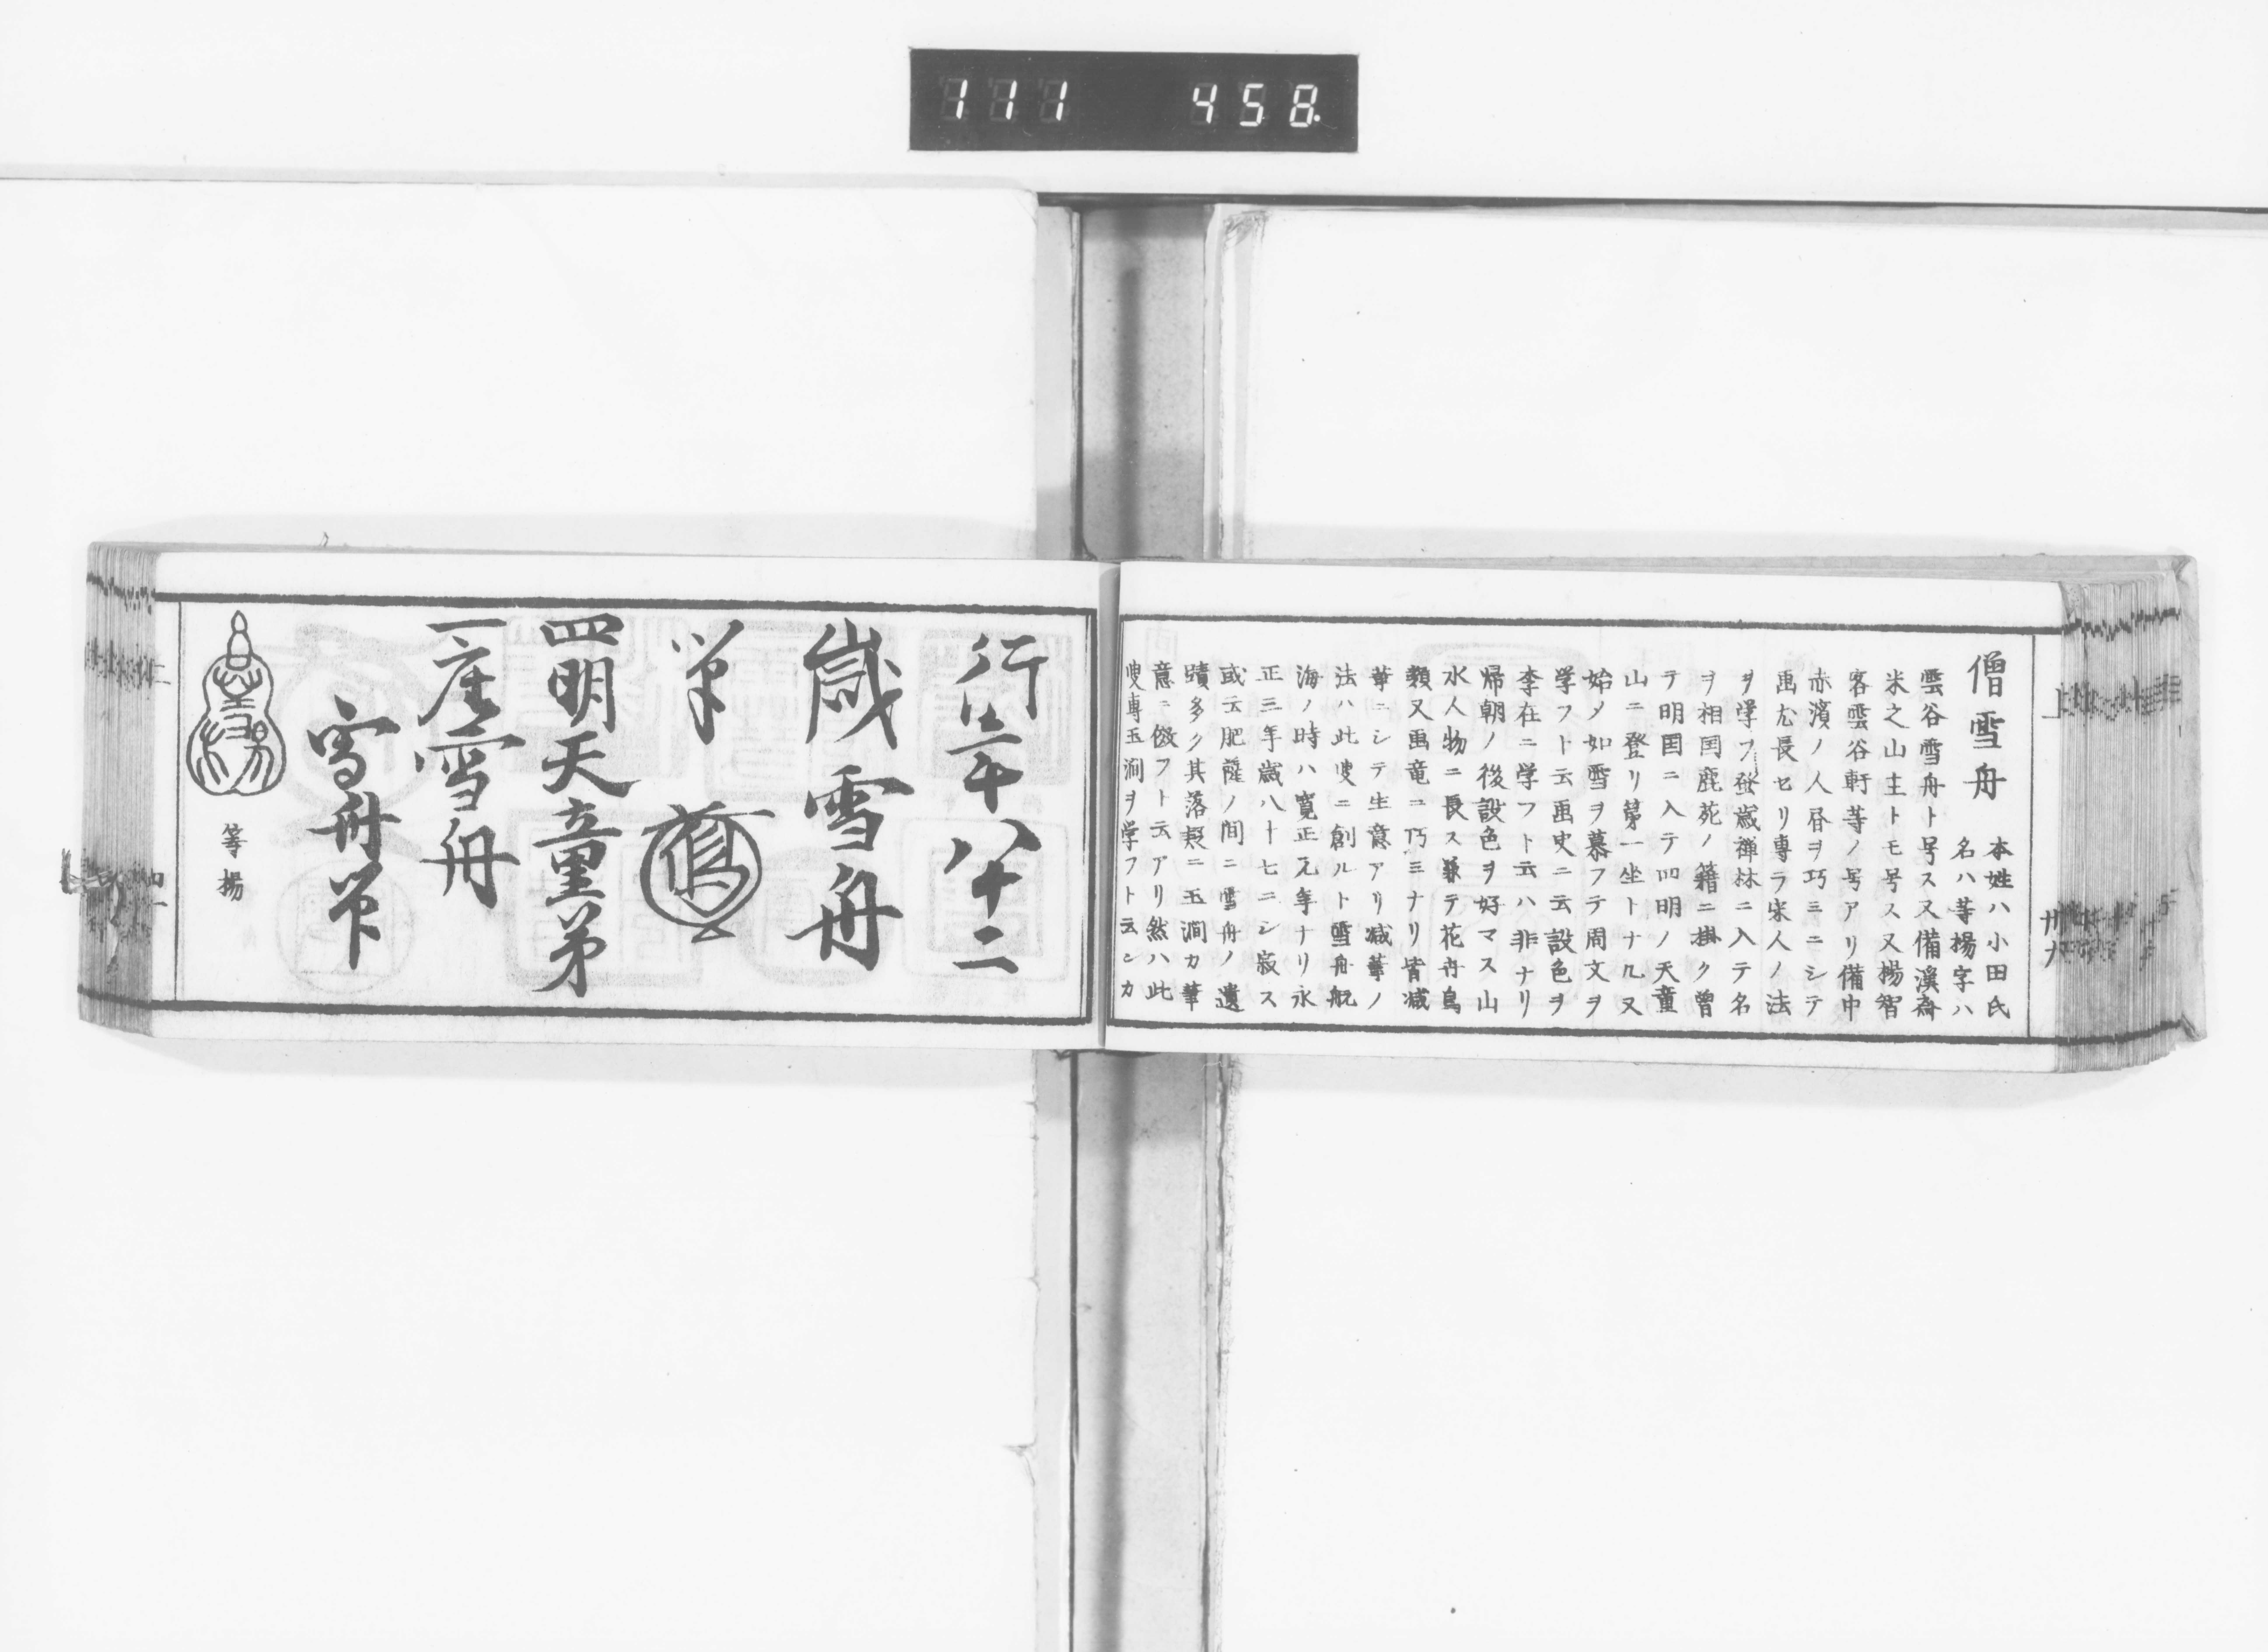 111 458.
僧雪舟
本姓ハ小田氏
名ハ等揚字ハ
雲谷雪舟ト号ス又備溪斎
米之山主トモ号ス又揚智
客雲谷軒等ノ号アリ備中
赤濱ノ人昼ヲ巧ミニシテ
画尤長セリ専ラ宋人ノ法
ヲ学フ登歳禅林ニ入テ名
ヲ相国鹿苑ノ籍ニ掛ク曽
テ明国ニ入テ四明ノ天童
山ニ登リ第一坐トナル又
始メ如雪ヲ慕フテ周文ヲ
学フト云画史ニ云設色ヲ
李在ニ学フト云ハ非ナリ
帰朝ノ後設色ヲ好マス山
水人物ニ長ス兼テ花卉鳥
類又画竜ニ巧ミナリ皆减
筆ニシテ生意アリ减筆ノ
法ハ此叟ニ創ルト雪舟航
海ノ時ハ寛正元年ナリ永
正三年歳八十七ニシ寂ス
或云肥薩ノ間ニ雪舟ノ遺
蹟多ク其落款ニ玉澗カ筆
意ニ倣フト云アリ然ハ此
叟専玉澗ヲ学フト云シカ
行年八十二
歳雪舟
筆
四明天童第
一座雪舟
雪舟筆
等揚
等揚